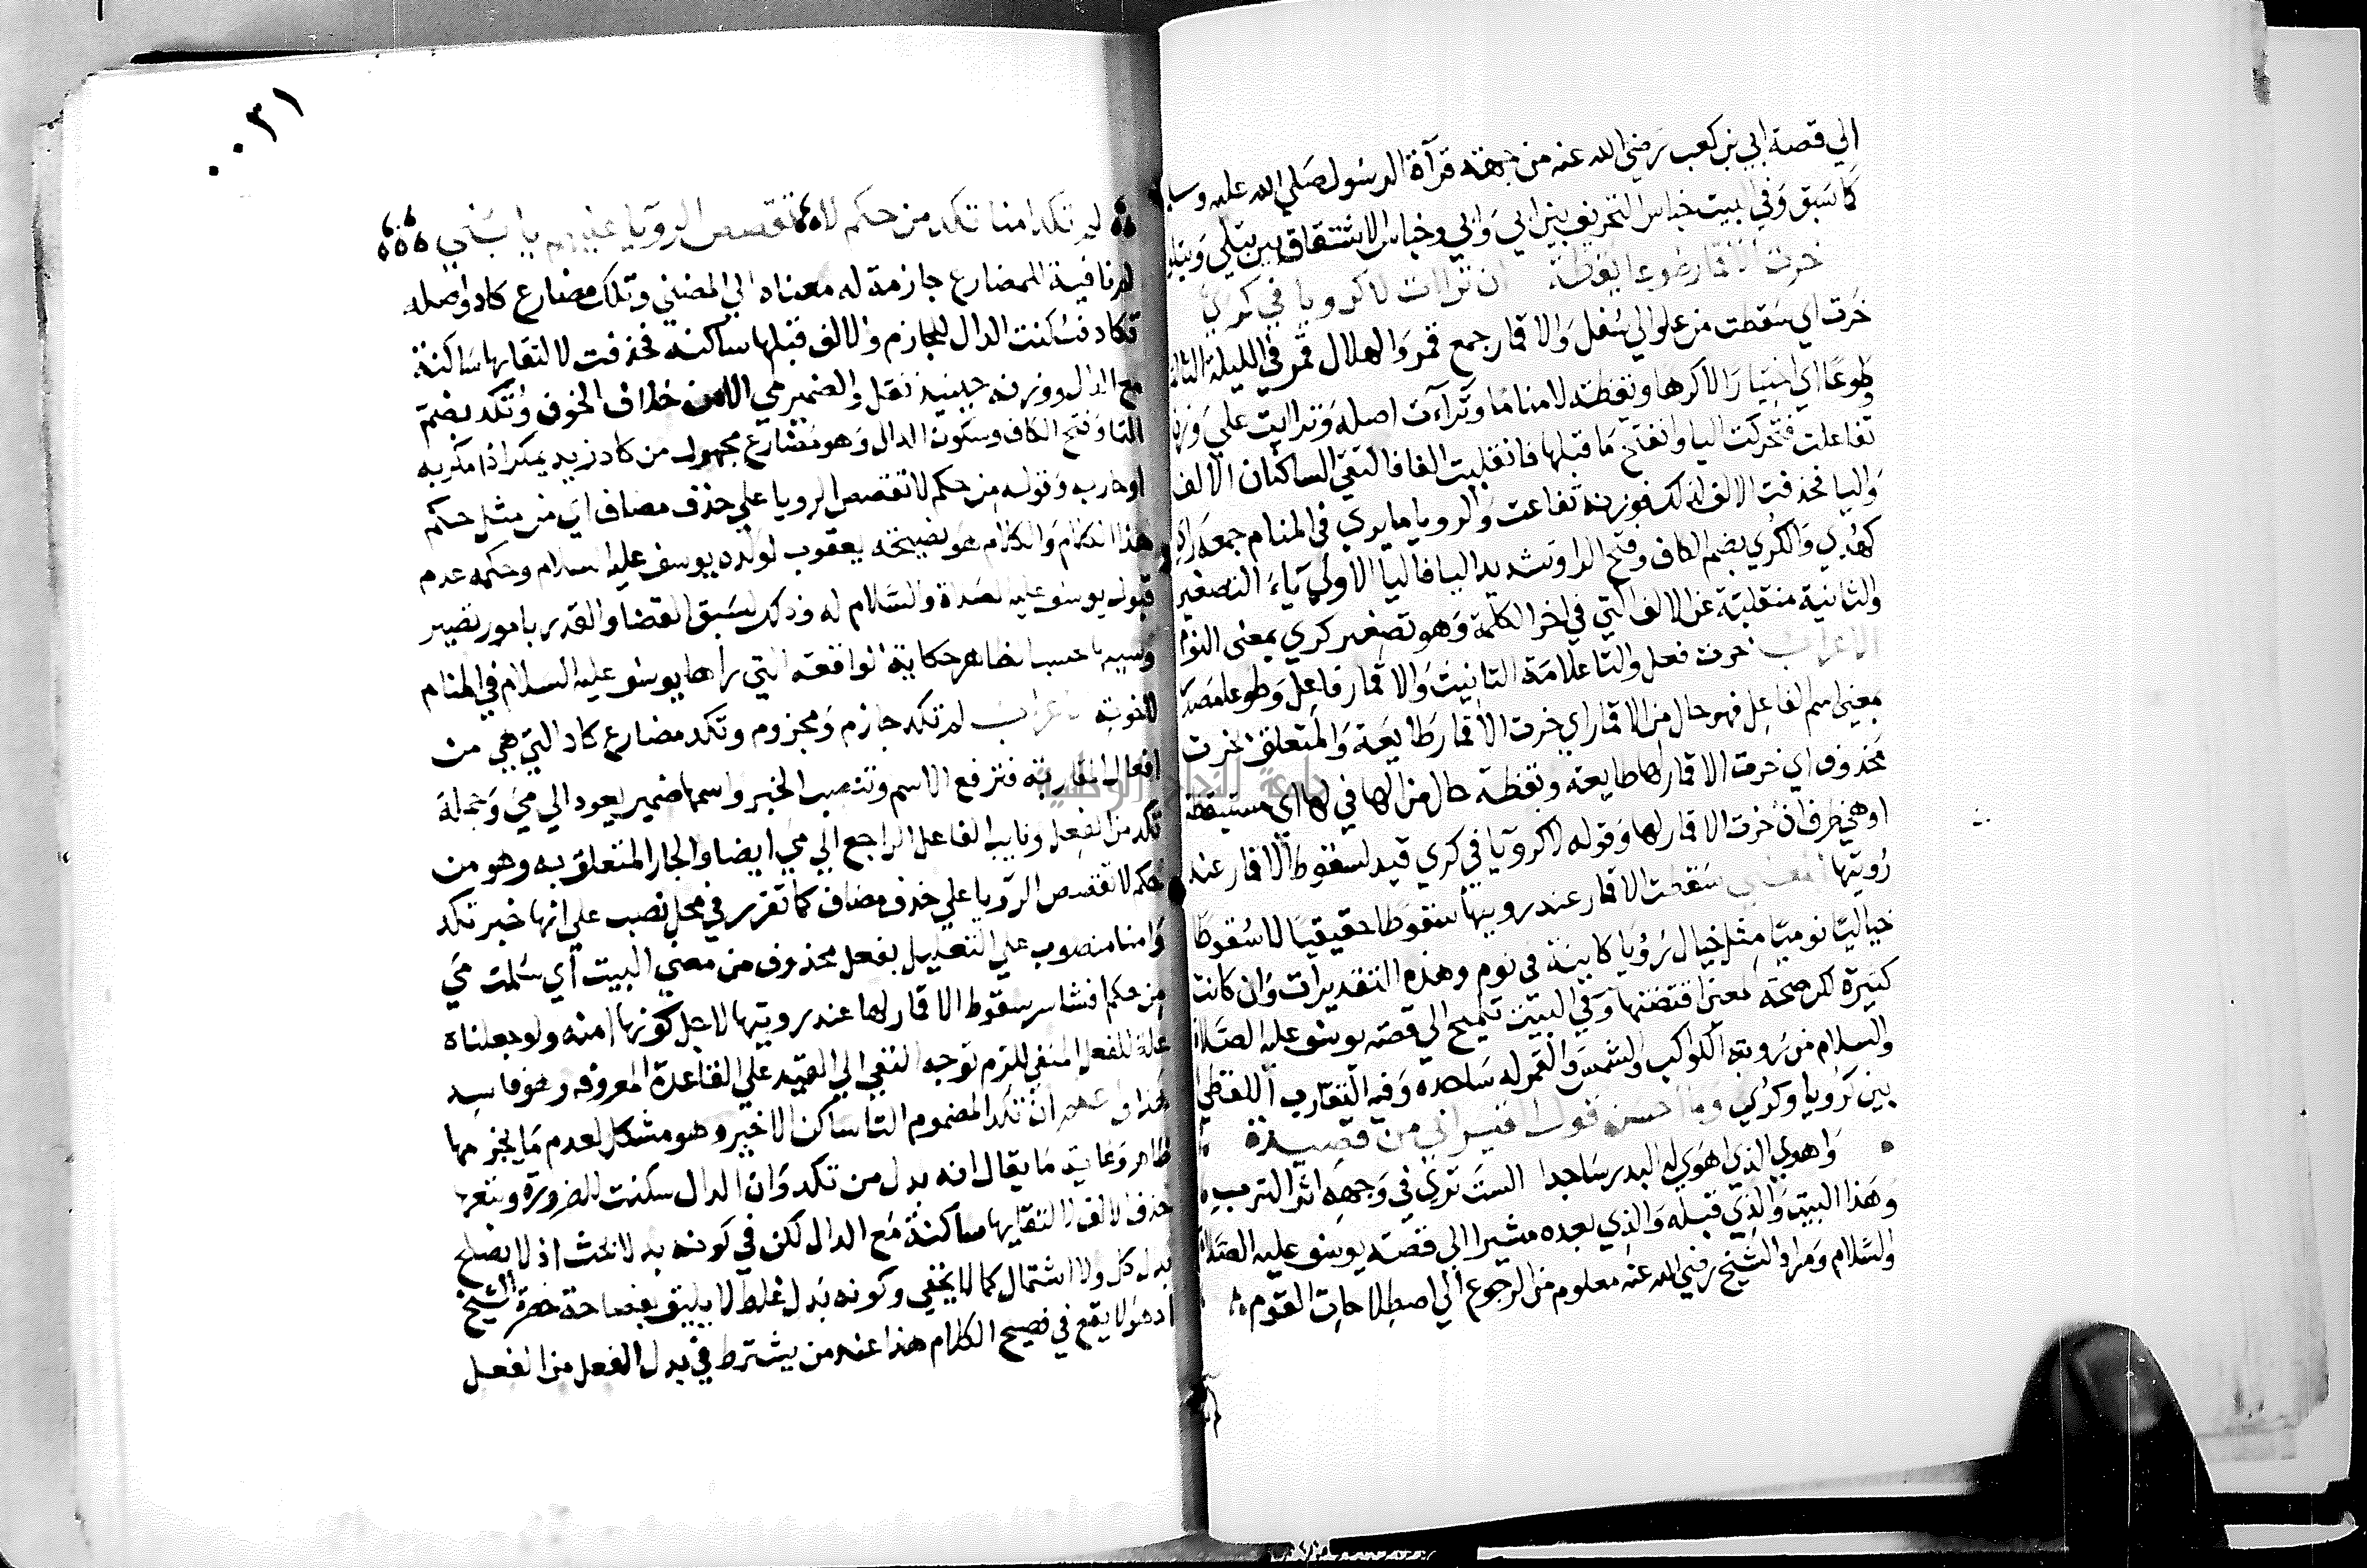 الي قصة ابي بن كعب رضي الله عنه من جهة قرآة الرسول صلي الله عليه وسلم
كما سبق وفي البيت جناس التحريف بين ابي وابي وجناس الاشتقاق بين يتلي ويتلي
خرت الاقمار طوعا يقظة ان تراات لا كرويا في كري
خرت اي سقطت من علو الي سفل والاقمار جمع قمر والهلال قمر في الليلة الثالثة
طوعا اي اختيارا لا كرها ويقظة لا مناما وتراءت اصله وترايت علي وزن
تفاعلت فتحركت اليا وانفتح ما قبلها فانقلبت الفا فالتقي الساكنان الالف
واليا فحذفت الالف لذلك فوزنه تفاعت والرويا ما يري في المنام جمعه راي
كهدي والكري بضم الكاف وفتح الرا وتشديد اليا فاليا الاولي ياء التصغير
والثانية منقلبة عن الالف التي في اخر الكلمة وهو تصغير كري بمعني النوم
الاعراب خرت فعل والتا علامة التانيث والاقمار فاعل وطوعا مصدر
بمعني اسم الفاعل فهو حال من الاقمار اي خرت الاقمار طايعة والمتعلق بخرت
محذوف اي خرت الاقمار لها طايعة ويقظة حال من الها في لها اي مستيقظة
او هي ظرف ان خرت الاقمار لها وقوله لا كرويا في كري قيد لسقوط الاقمار عند
رويتها المعني سقطت الاقمار عند رويتها سقوطا حقيقيا لا سقوطا
خياليا نوميا مثل خيال رؤيا كاينة في نوم وهذه التقديرات وان كانت
كثيرة لكن صحة المعني اقتضتها وفي البيت تلميح الي قصة يوسف عليه الصلاة
والسلام من رويته الكواكب والشمس والقمر له ساجدة وفيه التقارب اللفظي
بين كرويا وكري وما احسن قول القيسراني من قصيدة
واهوي الذي اهوي له البدر ساجدا الست تري في وجهه اثر الترب
وهذا البيت والذي قبله والذي بعده مشيرا الي قصة يوسف عليه الصلاة
والسلام ومراد الشيخ رضي الله عنه معلوم من الرجوع الي اصطلاحات القوم
٠٠٣١
لم تكد امنا تكد من حكم لا تقصص الرويا عليهم يا بني
لم نافية للمضارع جازمة له معناه الي المضي وتكد مضارع كاد واصله
تكاد فسكنت الدال للجازم والالف قبلها ساكنة فحذفت لالتقايها ساكنة
مع الدال ووزنه حينيذ تفل والضمير مي الامن خلاف الخوف وتكد بضم
التا وفتح الكاف وسكون الدال وهو مضارع مجهول من كاد زيد بعمر اذا مكر به
او حاربه وقوله من حكم لا تقصص الرويا علي حذف مضاف اي من مثل حكم
هذا الكلام والكلام هو نصيحة يعقوب لولده يوسف عليه السلام وحكمه عدم
قبول يوسف عليه الصلاة والسلام له وذلك لسبق القضا والقدر بامور تصير
وسببها حسب الظاهر حكاية الواقعة التي راها يوسف عليه السلام في المنام
لاخوته الاعراب لم تكد جازم ومجزوم وتكد مضارع كاد التي هي من
افعال المقاربة فترفع الاسم وتنصب الخبر واسمها ضمير يعود الي مي وجملة
تكد من الفعل ونايب الفاعل الراجع الي مي ايضا والجار المتعلق به وهو من
حكم لا تقصص الرويا علي حذف مضاف كما تقرر في محل نصب علي انها خبر تكد
وامنا منصوب علي التعليل بفعل محذوف من معني البيت اي سلمت مي
من حكم افشا سر سقوط الاقمار لها عند رويتها لاجل كونها امنه ولو جعلناه
علة للفعل المنفي للزم توجه النفي الي القيد علي القاعدة المعروفه وهو فاسد
هذا ان تكد المضموم التا ساكن الاخير وهو مشكل لعدم ما يجزمها
ظاهر وغاية ما يقال انه بدل من تكد وان الدال سكنت للضرورة
حذف الالف لالتقايها ساكنة مع الدال لكن في كونه بدلا بحث اذ لا يصلح
بدل كل ولا اشتمال كما لا يخفي وكونه بدل غلط لا يليق بفصاحة حضرة الشيخ
اذ هو لا يقع في فصيح الكلام هذا عند من يشترط في بدل الفعل من الفعل